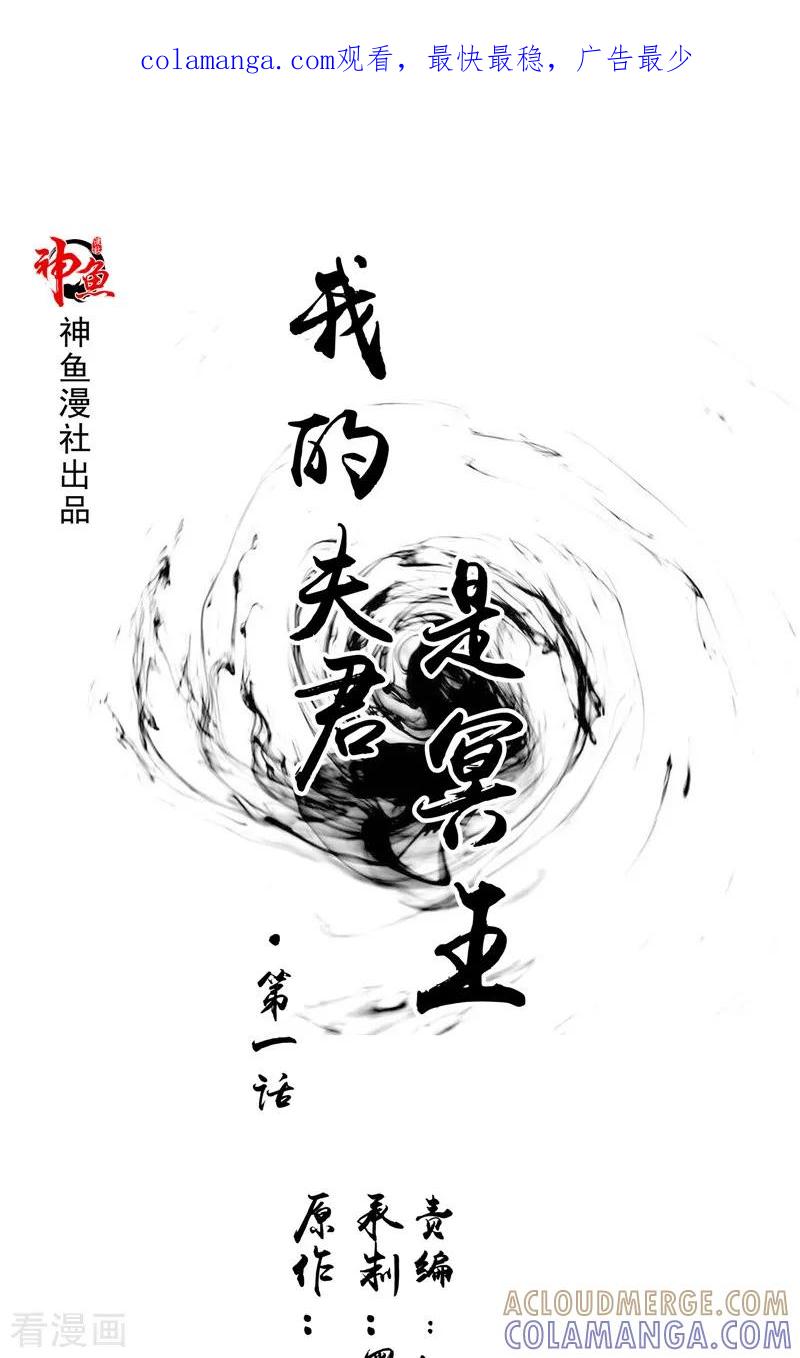 colamanga.com观看，最快最稳，广告最少
神鱼
神鱼漫社出品
我的夫君
是冥王
·第一话
原作：
承制：
责编：
看漫画
ACLOUDMERGE.COM
COLAMANGA.COM